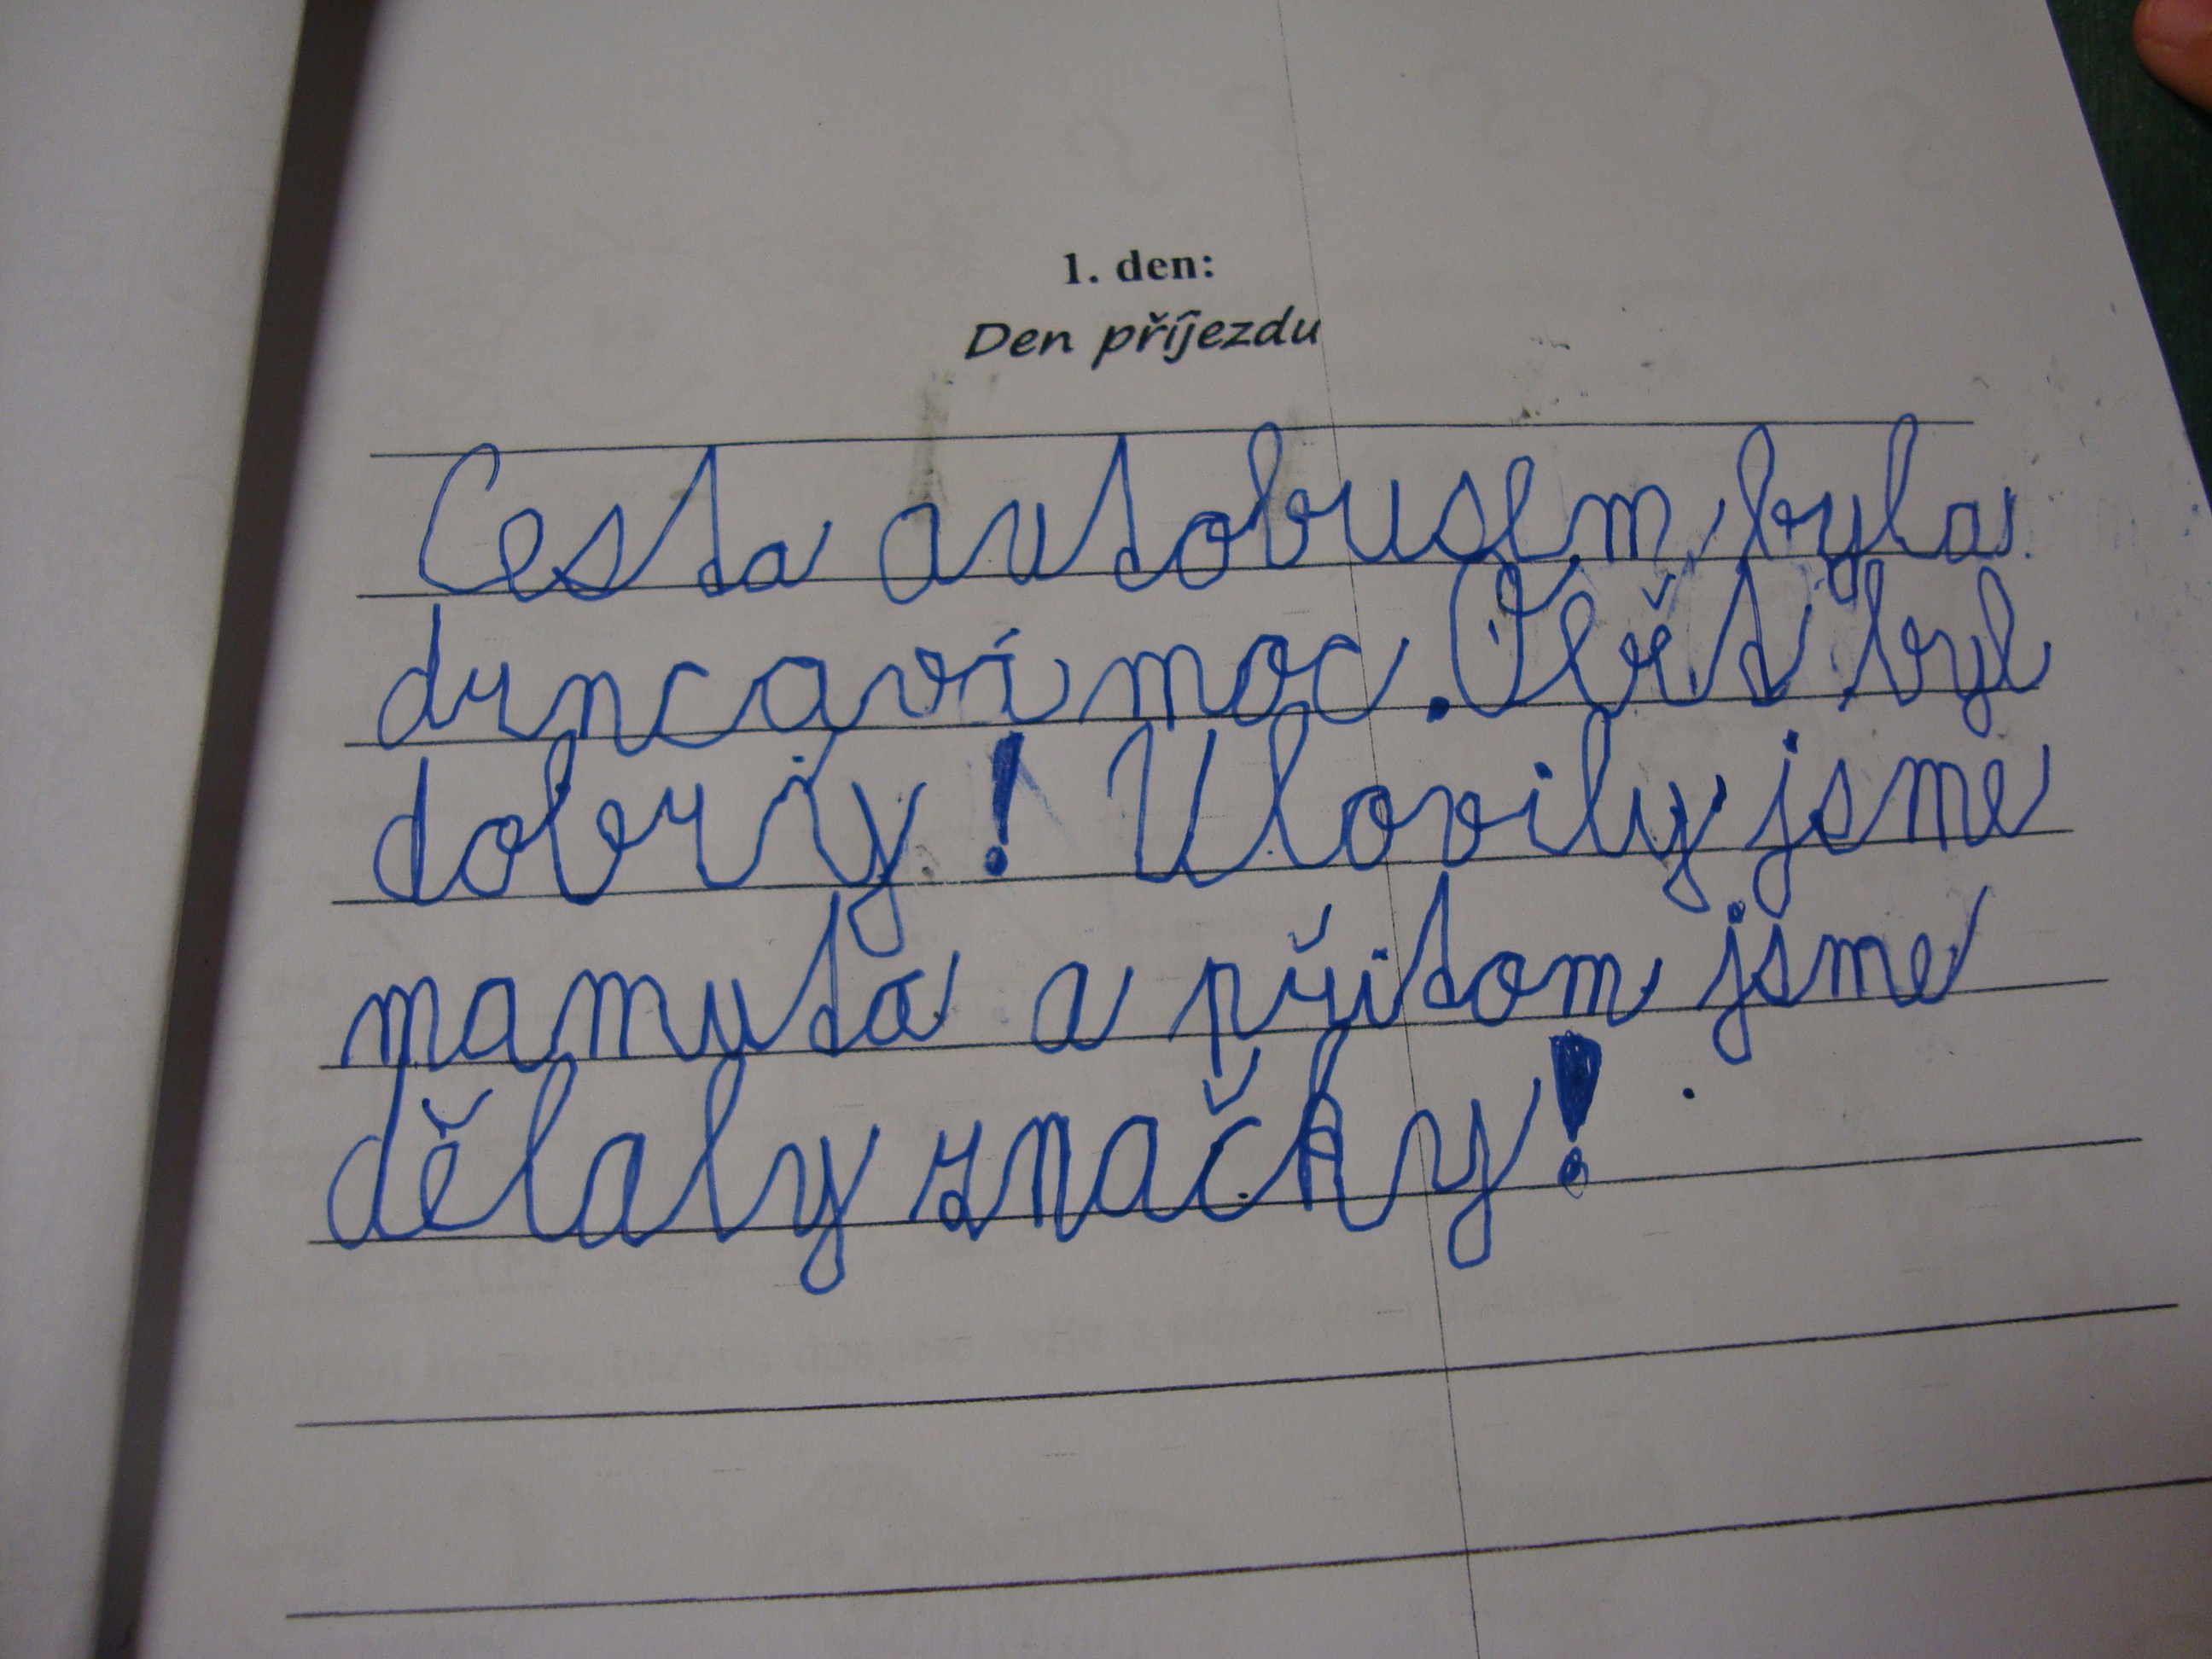 1. den:
Den příjezdu
Cesta autobusem byla
drncaví moc. byl
dobrý! Ulovily jsme
mamuta a přitom jsme
dělaly značky!